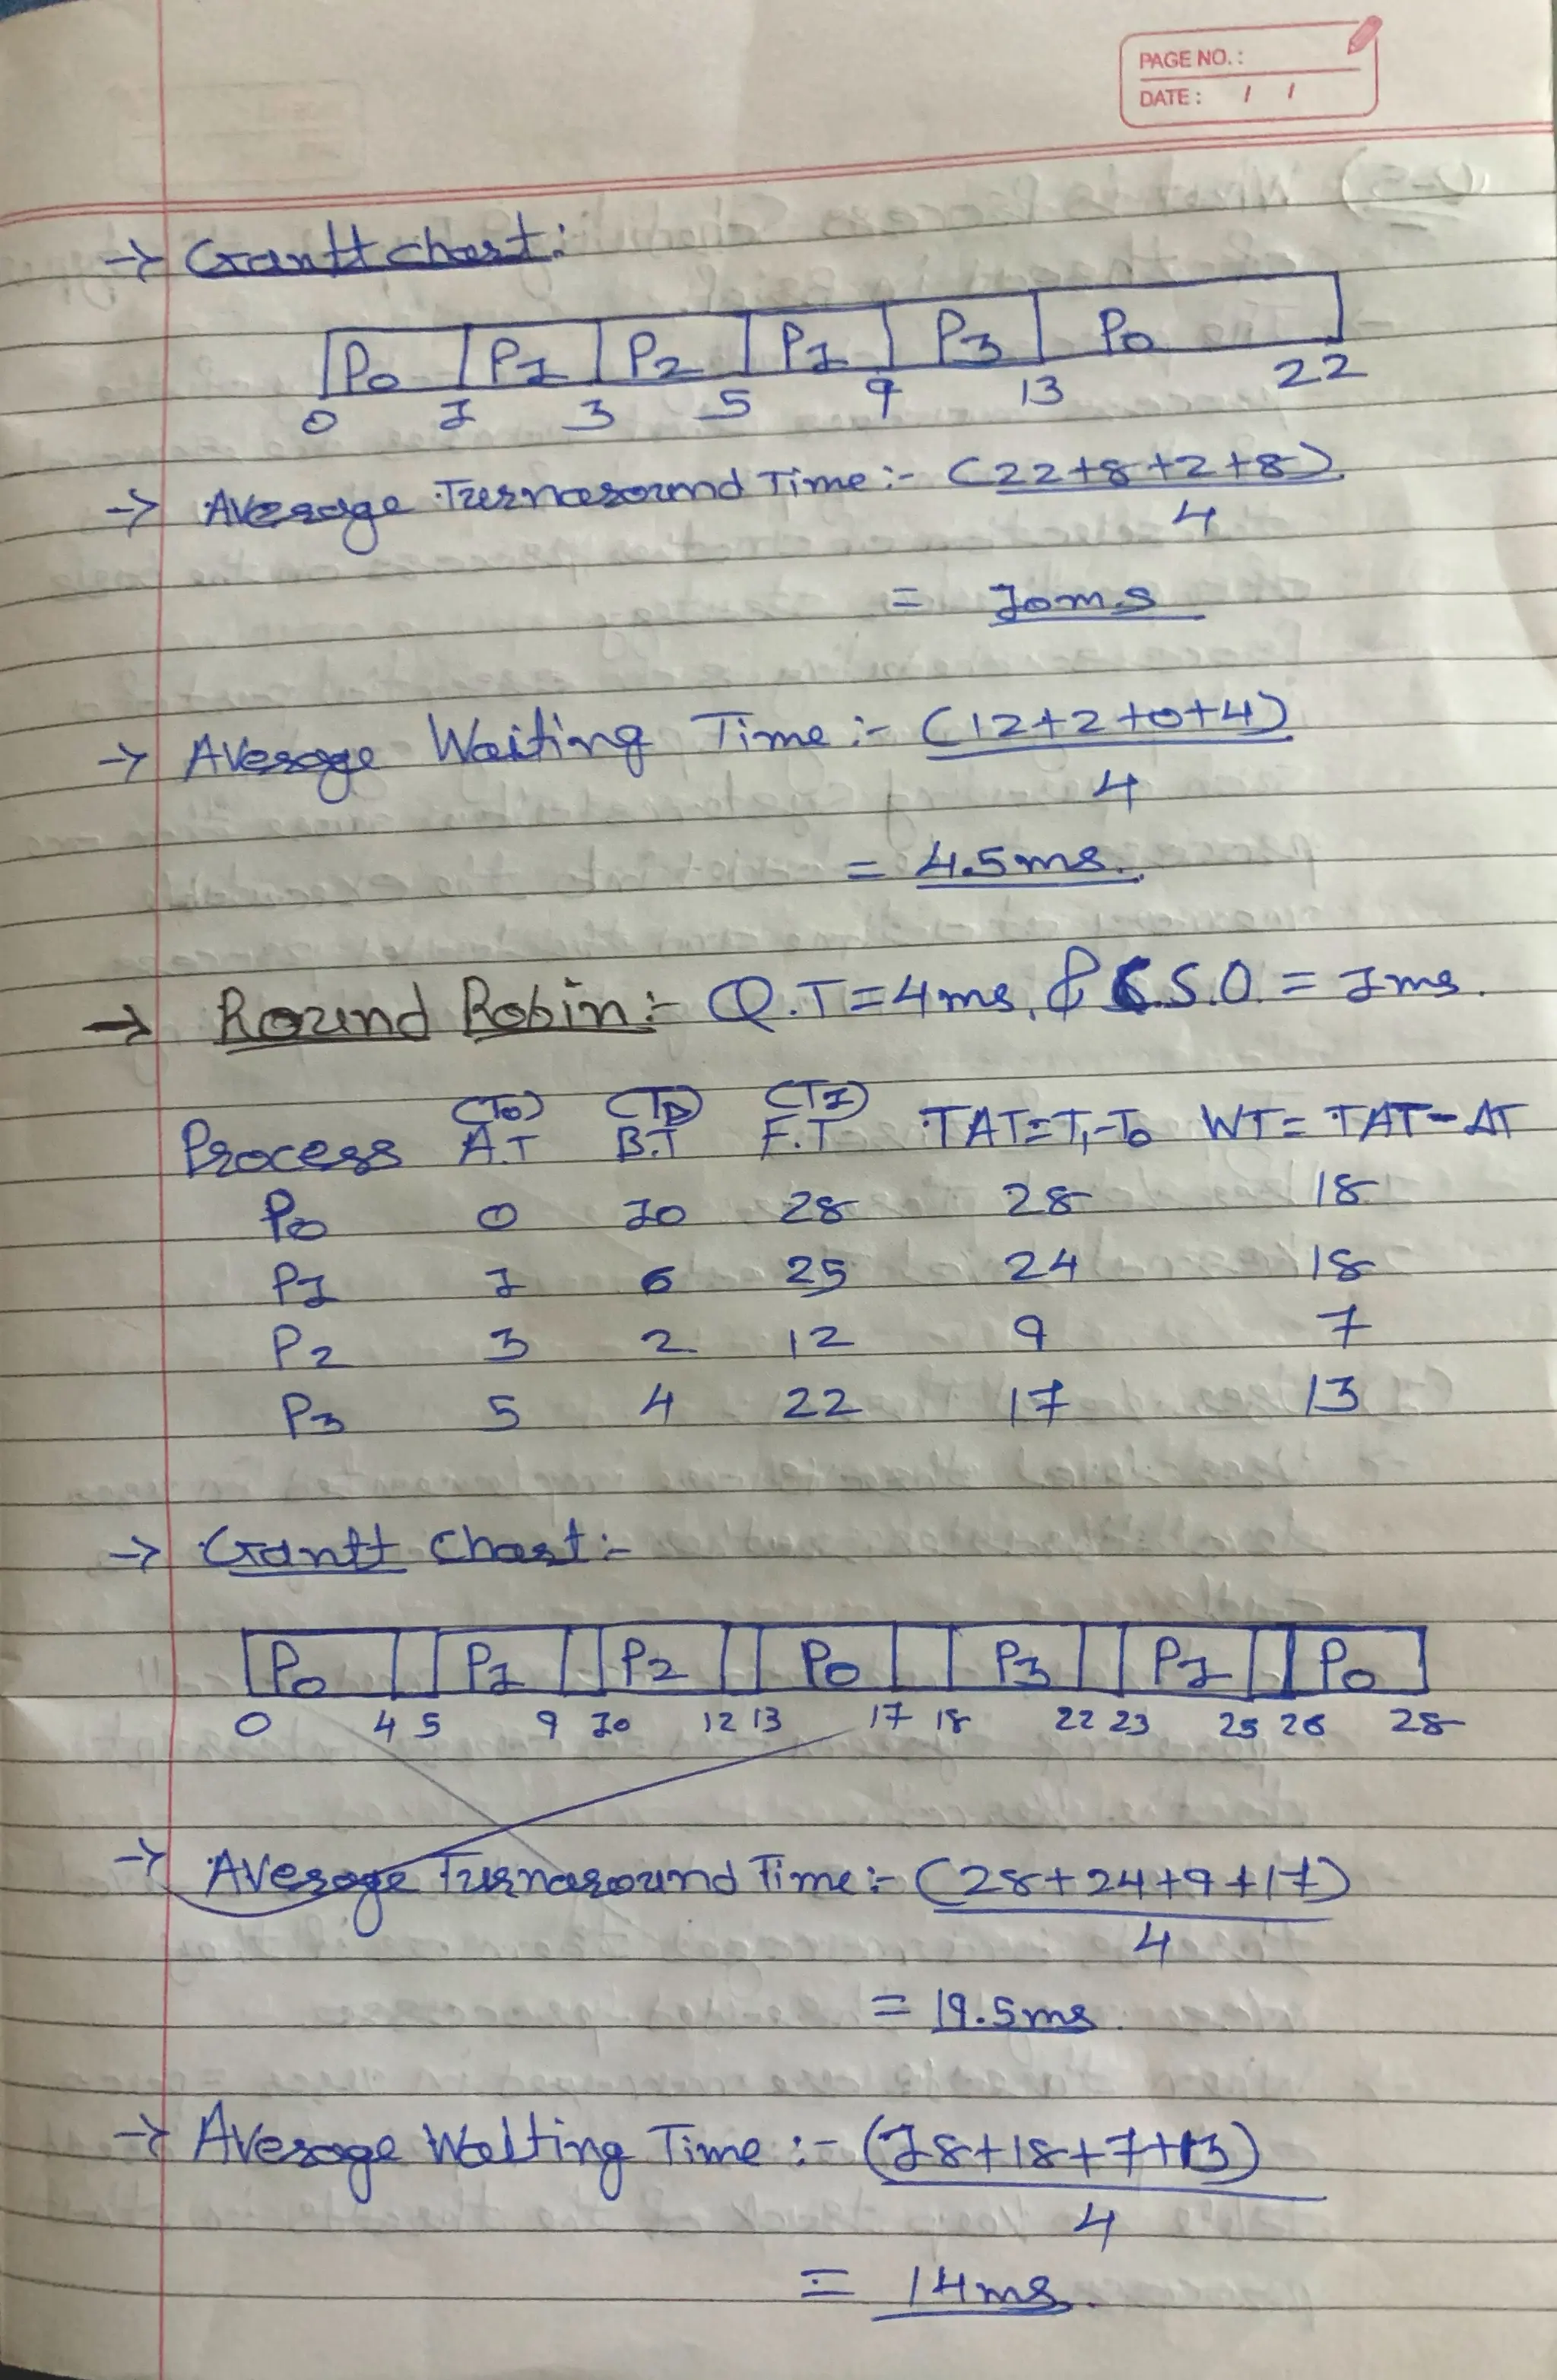 PAGE NO. :
DATE : / /
→ Gantt chart:
P0 P1 P2 P1 P3 P0
0 1 3 5 9 13 22
→ Average Turnaround Time :- (22+8+2+8)
4
= 10ms
→ Average Waiting Time :- (12+2+0+4)
4
= 4.5ms.
→ Round Robin :- Q.T=4ms, & C.S.O. = 1ms.
(T0) (TD) (T1)
Process A.T B.T F.T TAT=T1-T0 WT= TAT-ΔT
P0 0 10 28 28 18
P1 1 6 25 24 18
P2 3 2 12 9 7
P3 5 4 22 17 13
→ Gantt Chart :-
P0 P1 P2 P0 P3 P1 P0
0 4 5 9 10 12 13 17 18 22 23 25 26 28
→ Average Turnaround Time :- (28+24+9+17)
4
= 19.5ms.
→ Average Waiting Time :- (18+18+7+13)
4
= 14ms.